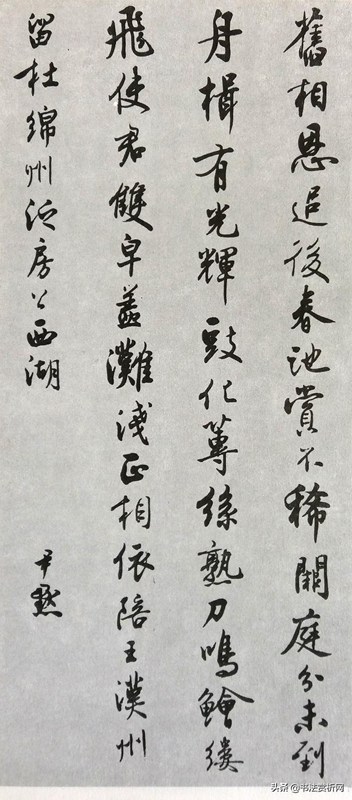 舊相恩追後春池賞不稀闕庭分未到
舟楫有光輝豉化蓴絲熟刀鳴鱠縷
飛使君雙皁蓋灘淺正相依陪王漢州
留杜綿州泛房公西湖
尹默
头条 @书法赏析网